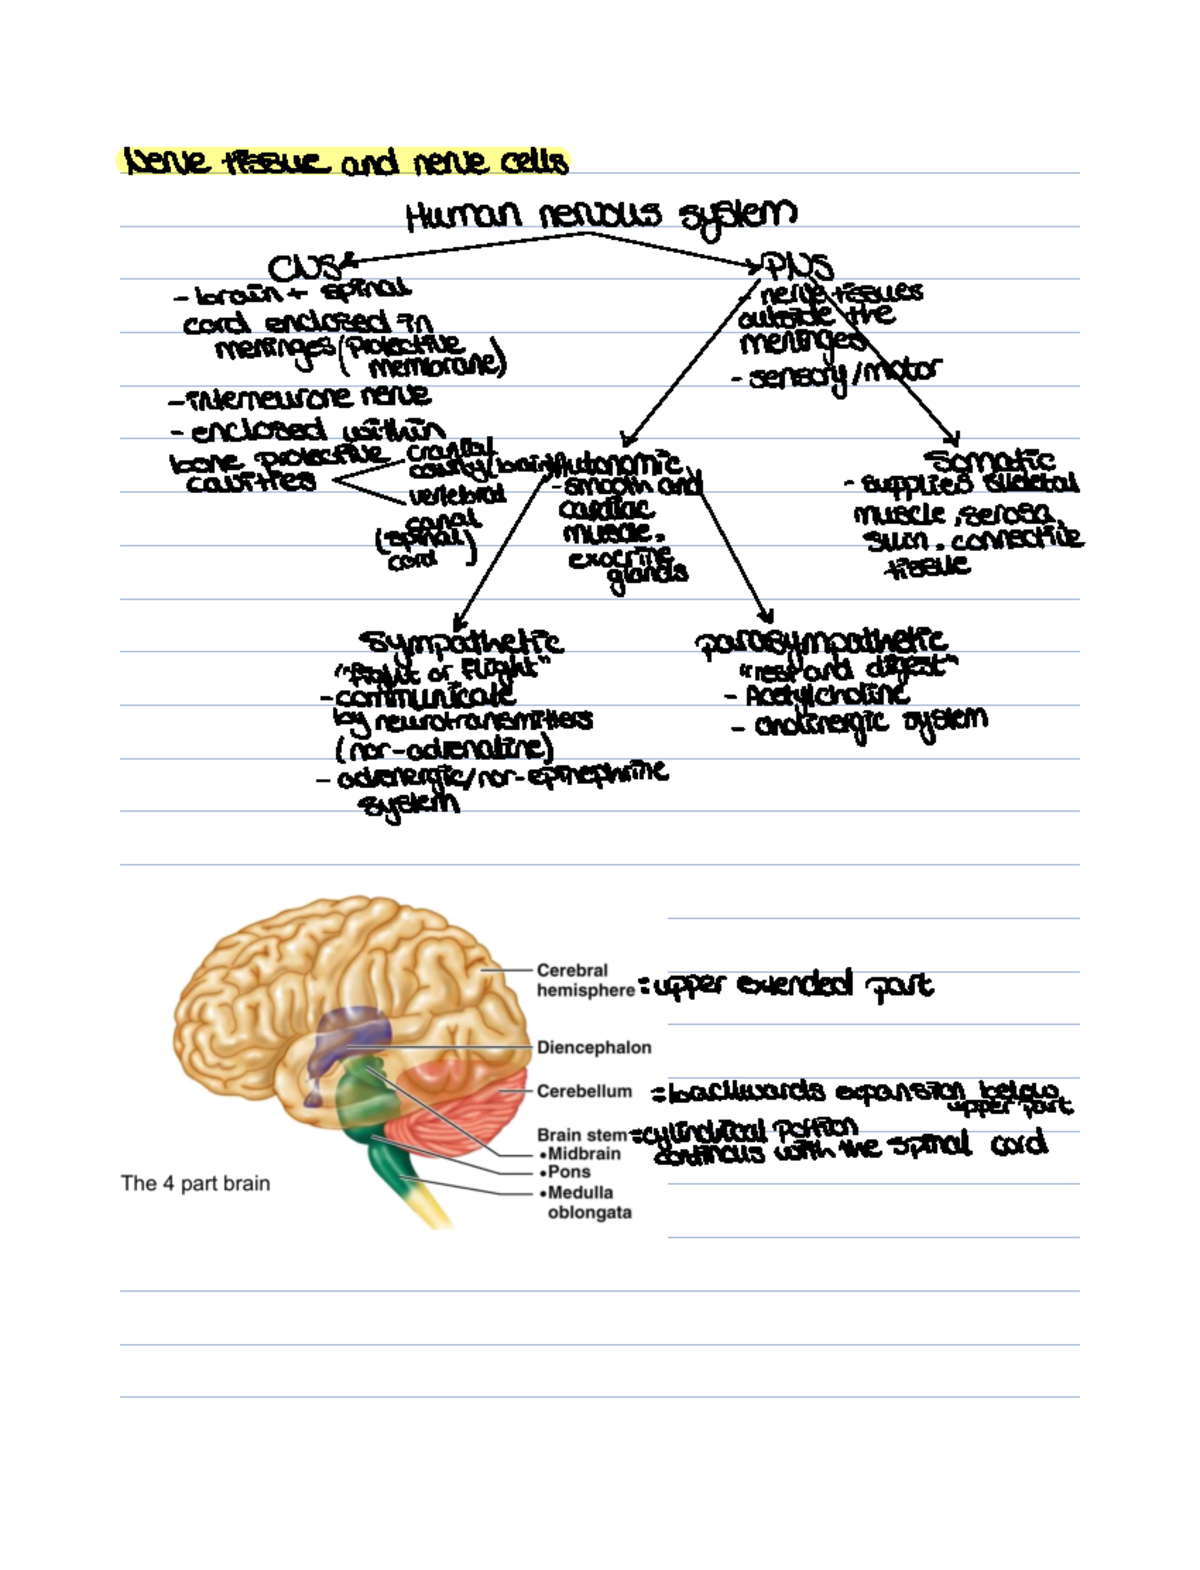 Nerve tissue and nerve cells
Human nervous system
CNS
- brain + spinal
cord enclosed in
meninges (protective
membrane)
- interneurone nerve
- enclosed within
bone protective
cavities
cranial
cavity (brain)
vertebral
canal
(spinal
cord)
PNS
- nerve tissues
outside the
meninges
- sensory/motor
Autonomic
- smooth and
cardiac
muscle,
exocrine
glands
Somatic
- supplies skeletal
muscle, serosa,
skin, connective
tissue
Sympathetic
"fight or flight"
- communicate
by neurotransmitters
(nor-adrenaline)
- adrenergic/nor-epinephrine
system
parasympathetic
"rest and digest"
- Acetylcholine
- cholinergic system
Cerebral
hemisphere = upper extended part
Diencephalon
Cerebellum = backwards expansion below
upper part
Brain stem = cylindrical portion
continous with the spinal cord
•Midbrain
•Pons
•Medulla
oblongata
The 4 part brain